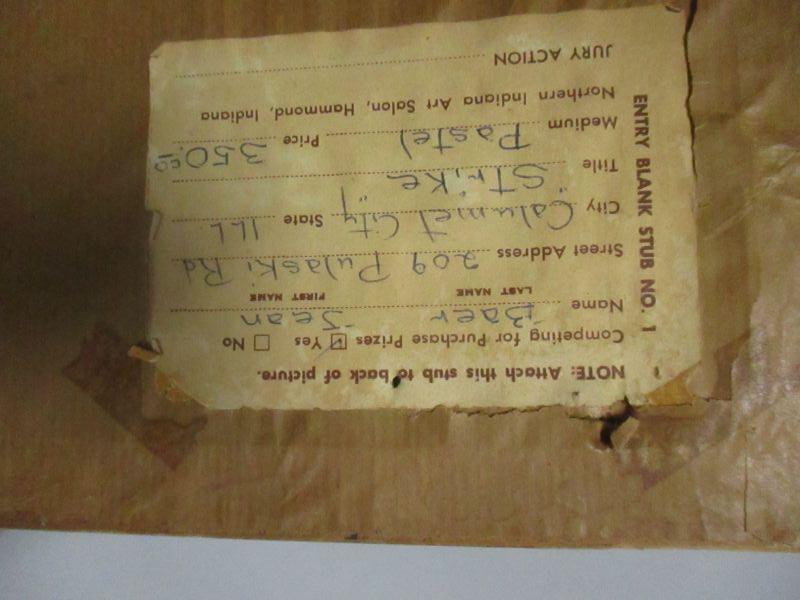 ENTRY BLANK STUB NO. 1
NOTE: Attach this stub to back of picture.
Competing for Purchase Prizes ☑ Yes ☐ No
Name Baer Jean
LAST NAME FIRST NAME
Street Address 209 Pulaski Rd
City Calumet City State ILL
Title "Strike"
Medium Pastel Price 350.00
Northern Indiana Art Salon, Hammond, Indiana
JURY ACTION